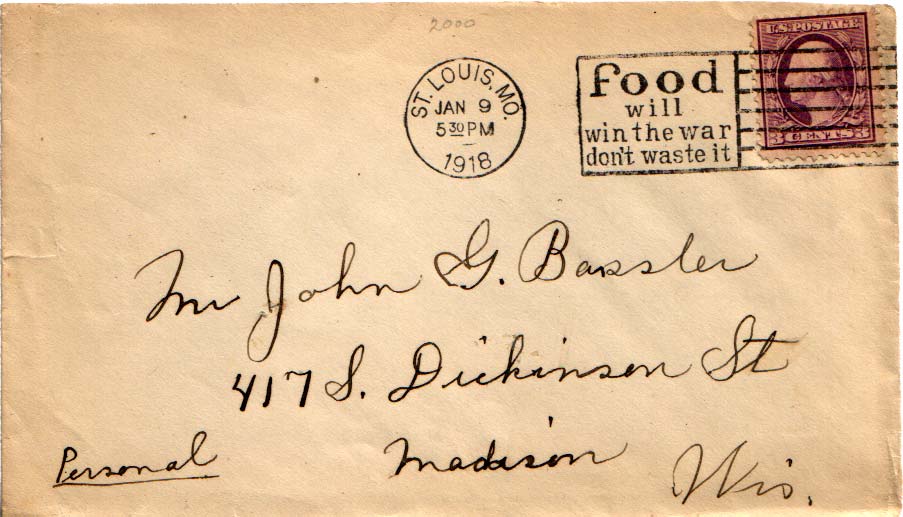 2000
ST. LOUIS, MO.
JAN 9
5 30 PM
1918
food
will
win the war
don't waste it
U.S. POSTAGE
3 CENTS 3
Mr John G. Bassler
417 S. Dickinson St
Madison Wis.
Personal